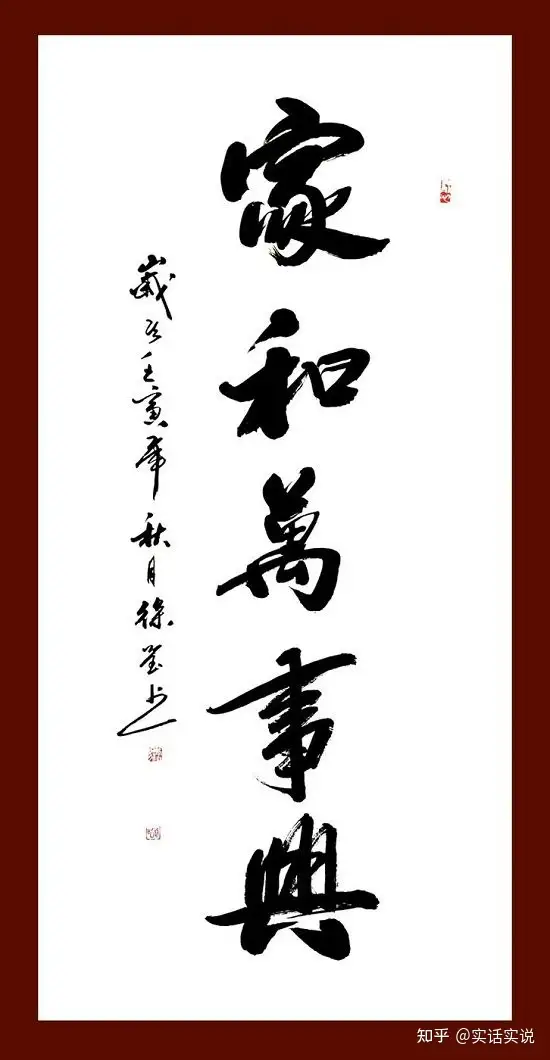 家和萬事興
歲次壬寅年秋月徐
知乎 @实话实说